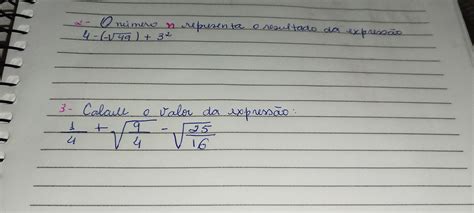 2- O número n representa o resultado da expressão
4-(-√49) + 3²
3- Calcule o valor da expressão:
1/4 + √9/4 - √25/16